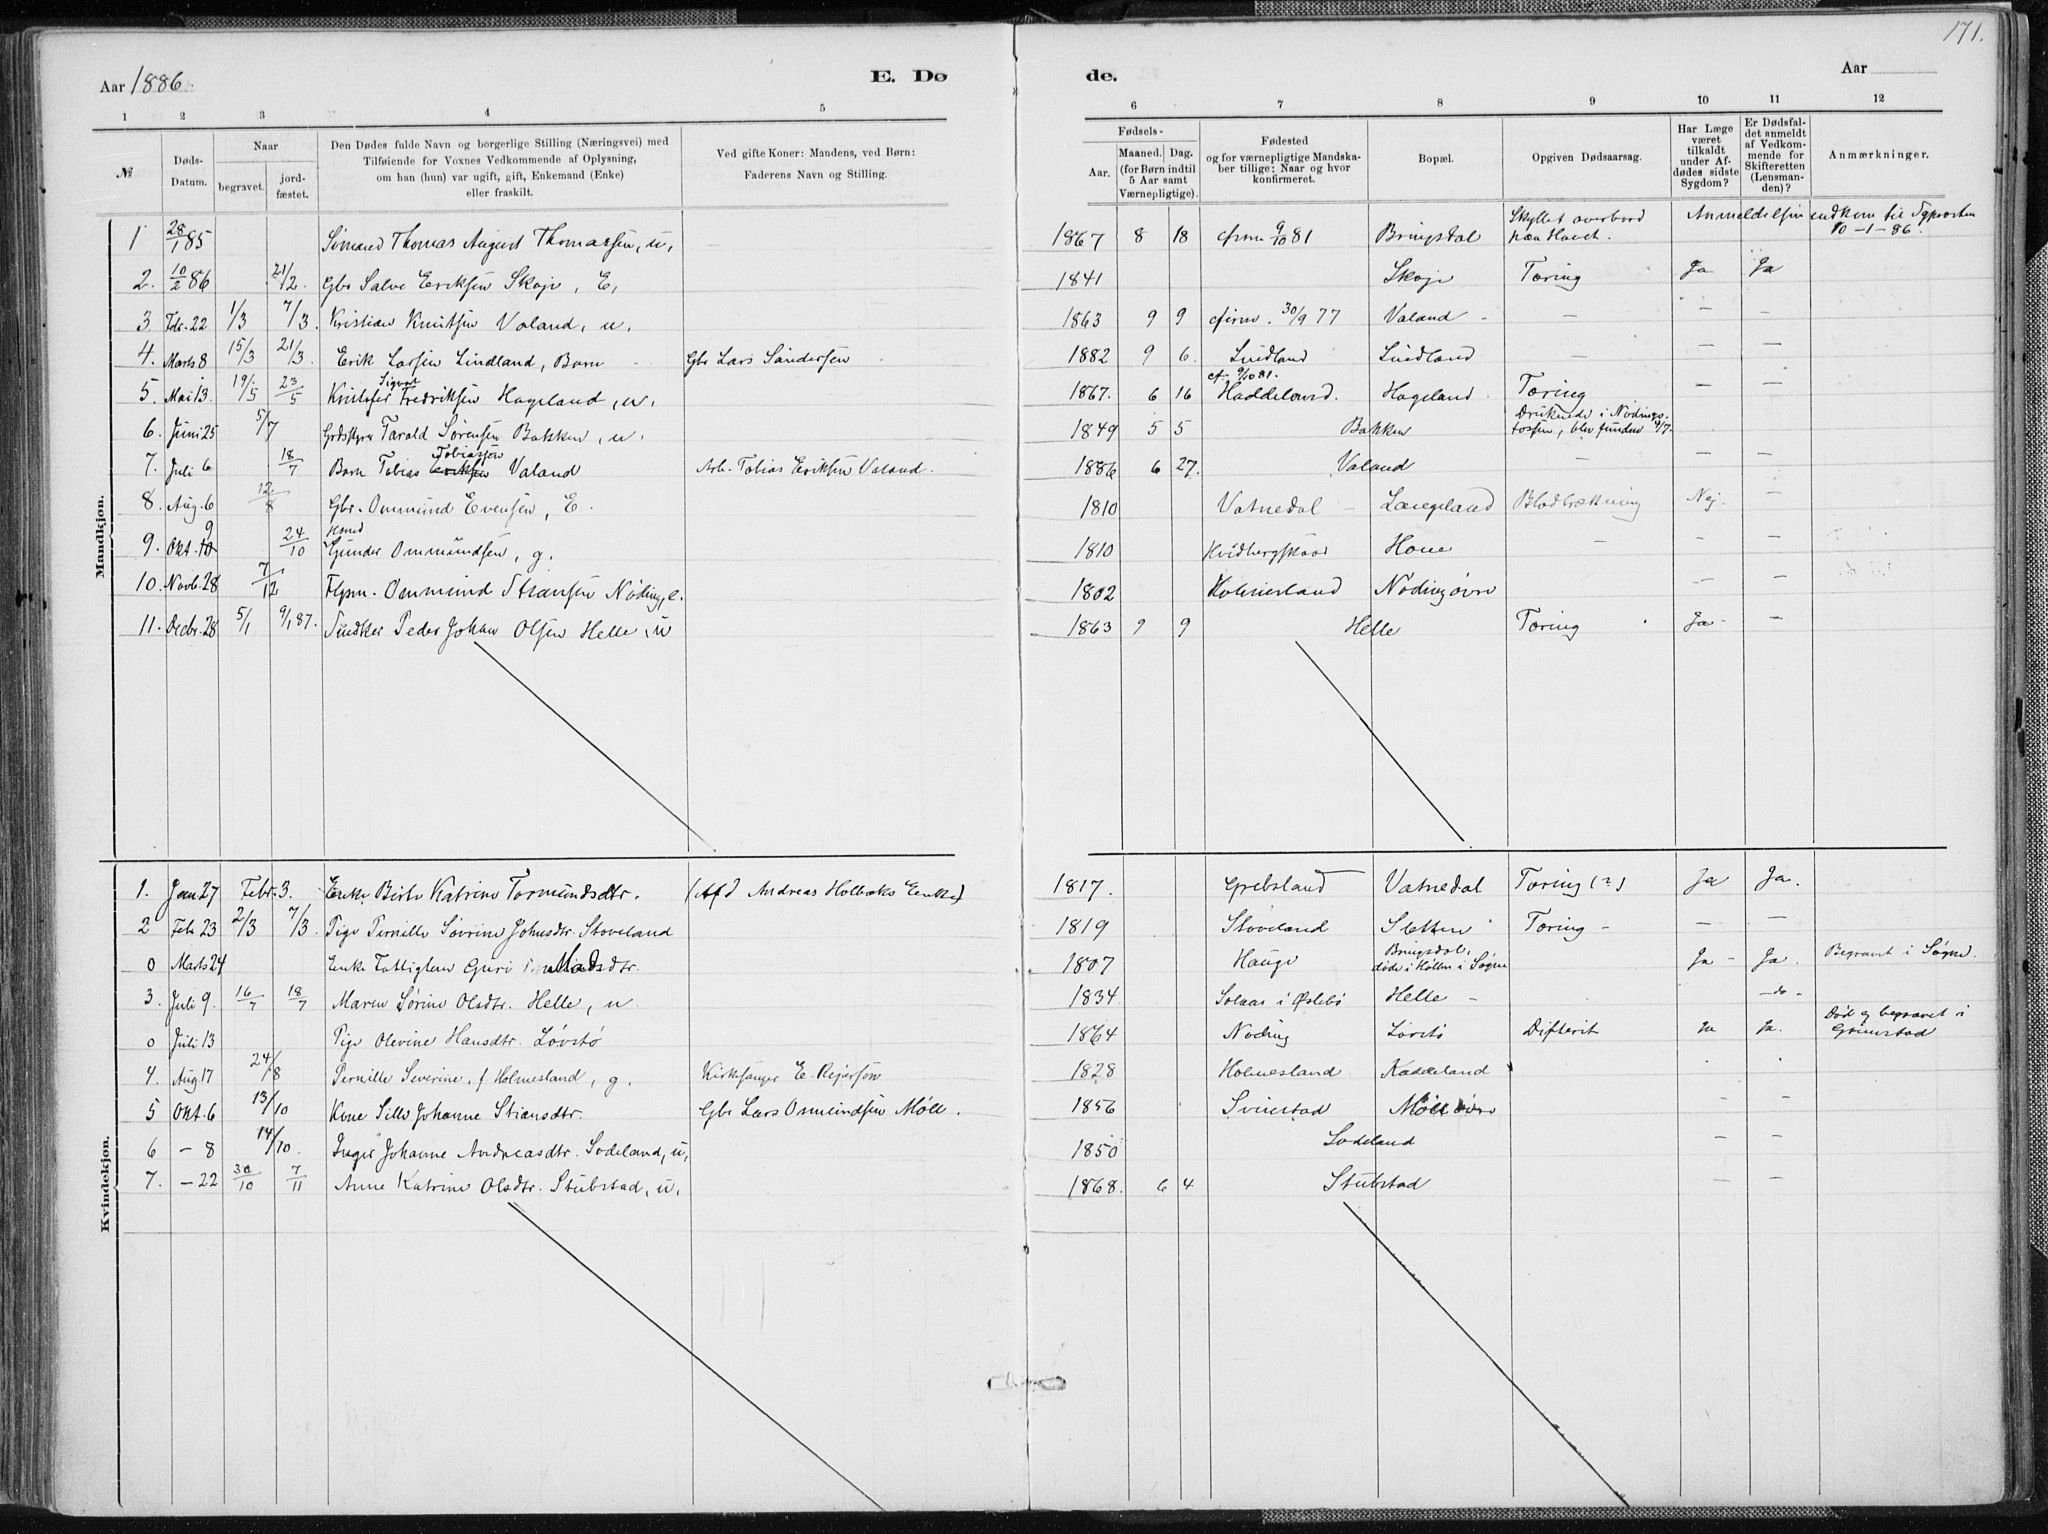 171.
Aar 1886. E. Dø de. Aar
1 2 3 4 5 6 7 8 9 10 11 12
№ Døds-Datum. Naar begravet. jordfæstet. Den Dødes fulde Navn og borgerlige Stilling (Næringsvei) med Tilføiende for Voxnes Vedkommende af Oplysning, om han (hun) var ugift, gift, Enkemand (Enke) eller fraskilt. Ved gifte Koner: Mandens, ved Børn: Faderens Navn og Stilling. Fødsels- Aar. Maaned. Dag. (for Børn indtil 5 Aar samt Værnepligtige). Fødested og for værnepligtige Mandskaber tillige: Naar og hvor konfirmeret. Bopæl. Opgiven Dødsaarsag. Har Læge været tilkaldt under Afdødes sidste Sygdom? Er Dødsfaldet anmeldt af Vedkommende for Skifteretten (Lensmanden)? Anmærkninger.
Mandkjøn.
1 28/1 85 Sømand Thomas August Thomassen, u, 1867 8 18 cfirm 9/10 81 Bringsdal Skyllet overbord paa Havet. Anmeldelsen indkom til Sgpræsten 10-1-86.
2. 10/2 86 21/2. Gbr Salve Eriksen Skoje, E, 1841 Skoje Tæring Ja Ja
3 Febr. 22 1/3 7/3. Kristian Knutsen Valand, u. 1863 9 9 cfirm. 30/9 77 Valand - — — —
4. Marts 8 15/3 21/3. Erik Larsen Lindland, Barn Gbr Lars Sandersen 1882 9 6. Lindland Lindland — — —
5. Mai 13. 19/5 23/5 Kristofer Sigvat Fredriksen Hageland, u. 1867. 6 16 cf. 9/10 81. Haddeland. Hageland. Tæring — —
6. Juni 25 5/7 Tarald Sørensen Bakken, u. 1849 5 5 Bakken Druknede i Nødingsfossen, blev funden 4/7. — —
7. Juli 6 18/7 Barn Tobias Eriksen Tobiassen Valand Arb. Tobias Eriksen Valand. 1886 6 27. Valand — — —
8. Aug. 6 12/8 Gbr. Ommund Evensen, E. 1810 Vatnedal - Langeland Blodbrækning Nej. —
9. Okt. 10 9 24/10 Gunder Ommundsen, g. 1810 Hone - — —
10. Novb. 28 7/12 Ommund Nøding, e. 1802 Holmesland Nøding øvre — —
11. Decbr. 28 5/1 9/1 87. Peder Johan Olsen Helle, u 1863 9 9 Helle Tæring Ja -
Kvindekjøn.
1. Jan 27 Febr. 3. Enke Birte Katrine Tormundsdtr. (Afd Andreas Holbæks Enke) 1817. Grebsland Vatnedal Tæring (?) Ja Ja.
2 Feb 23 2/3 7/3. Pige Pernille Sørine Johnsdtr. Stoveland 1819 Stoveland Sletten Tæring - — —
0 Marts 24 Enke Fattiglem Guri Madsdtr. 1807 Hauge Bringsdal, døde i Høllen i Søgne Ja - Ja. Begravet i Søgne.
3. Juli 9. 16/7 18/7 Maren Sørine Olsdtr. Helle, u 1834 Solaas i Øslebø Helle - -do-
0 Juli 13 Pige Olevine Hansdtr. Løvstø 1864 Nøding Løvstø Difterit Ja Ja. Død og begravet i Grimstad
4. Aug 17 24/8 Pernille Severine, f Holmesland, g. Kirkesanger E. Rejersøn 1828 Holmesland Kaddeland
5 Okt. 6 13/10 Kone Sille Johanne Stiansdtr. Gbr Lars Osmundsen Møll. 1856 Svinestad Møll øvre — —
6 - 8 14/10. Inger Johanne Andreasdtr. Sodeland, u, 1850 Sodeland — —
7. - 22 30/10 7/11 Anne Katrine Olsdtr. Stubstad, u. 1868. 6 4 Stubstad — —